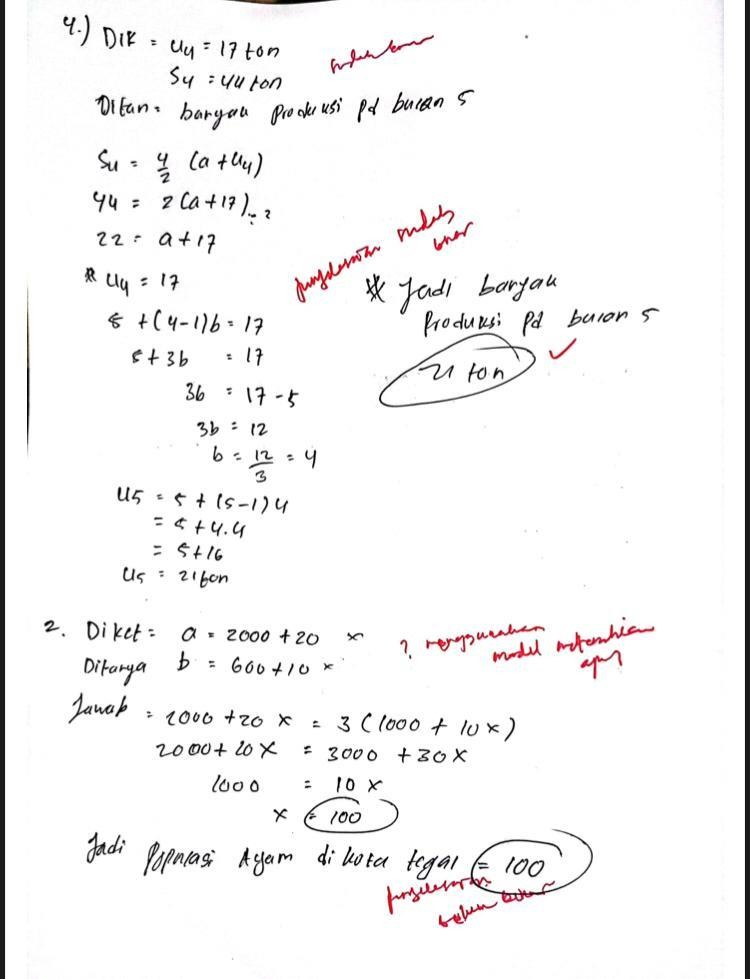 4.) DIK = U4 = 17 ton
S4 = 44 ton
Ditan = banyak Produksi pd bulan 5
S4 = 4/2 (a + U4)
44 = 2 (a + 17) : 2
22 = a + 17
* U4 = 17
5 + (4-1)b = 17
5 + 3b = 17
3b = 17 - 5
3b = 12
b = 12/3 = 4
U5 = 5 + (5-1) 4
= 5 + 4.4
= 5 + 16
U5 = 21 ton
penyelesaian sudah benar
* Jadi banyak
Produksi pd bulan 5
21 ton ✓
2. Diket = a = 2000 + 20 x
Ditanya b = 600 + 10 x
? menggunakan
model matematika
apa?
Jawab = 2000 + 20 x = 3 (1000 + 10 x)
2000 + 20 x = 3000 + 30 x
1000 = 10 x
x = 100
Jadi Populasi Ayam di kota tegal = 100
penyelesaian
belum benar